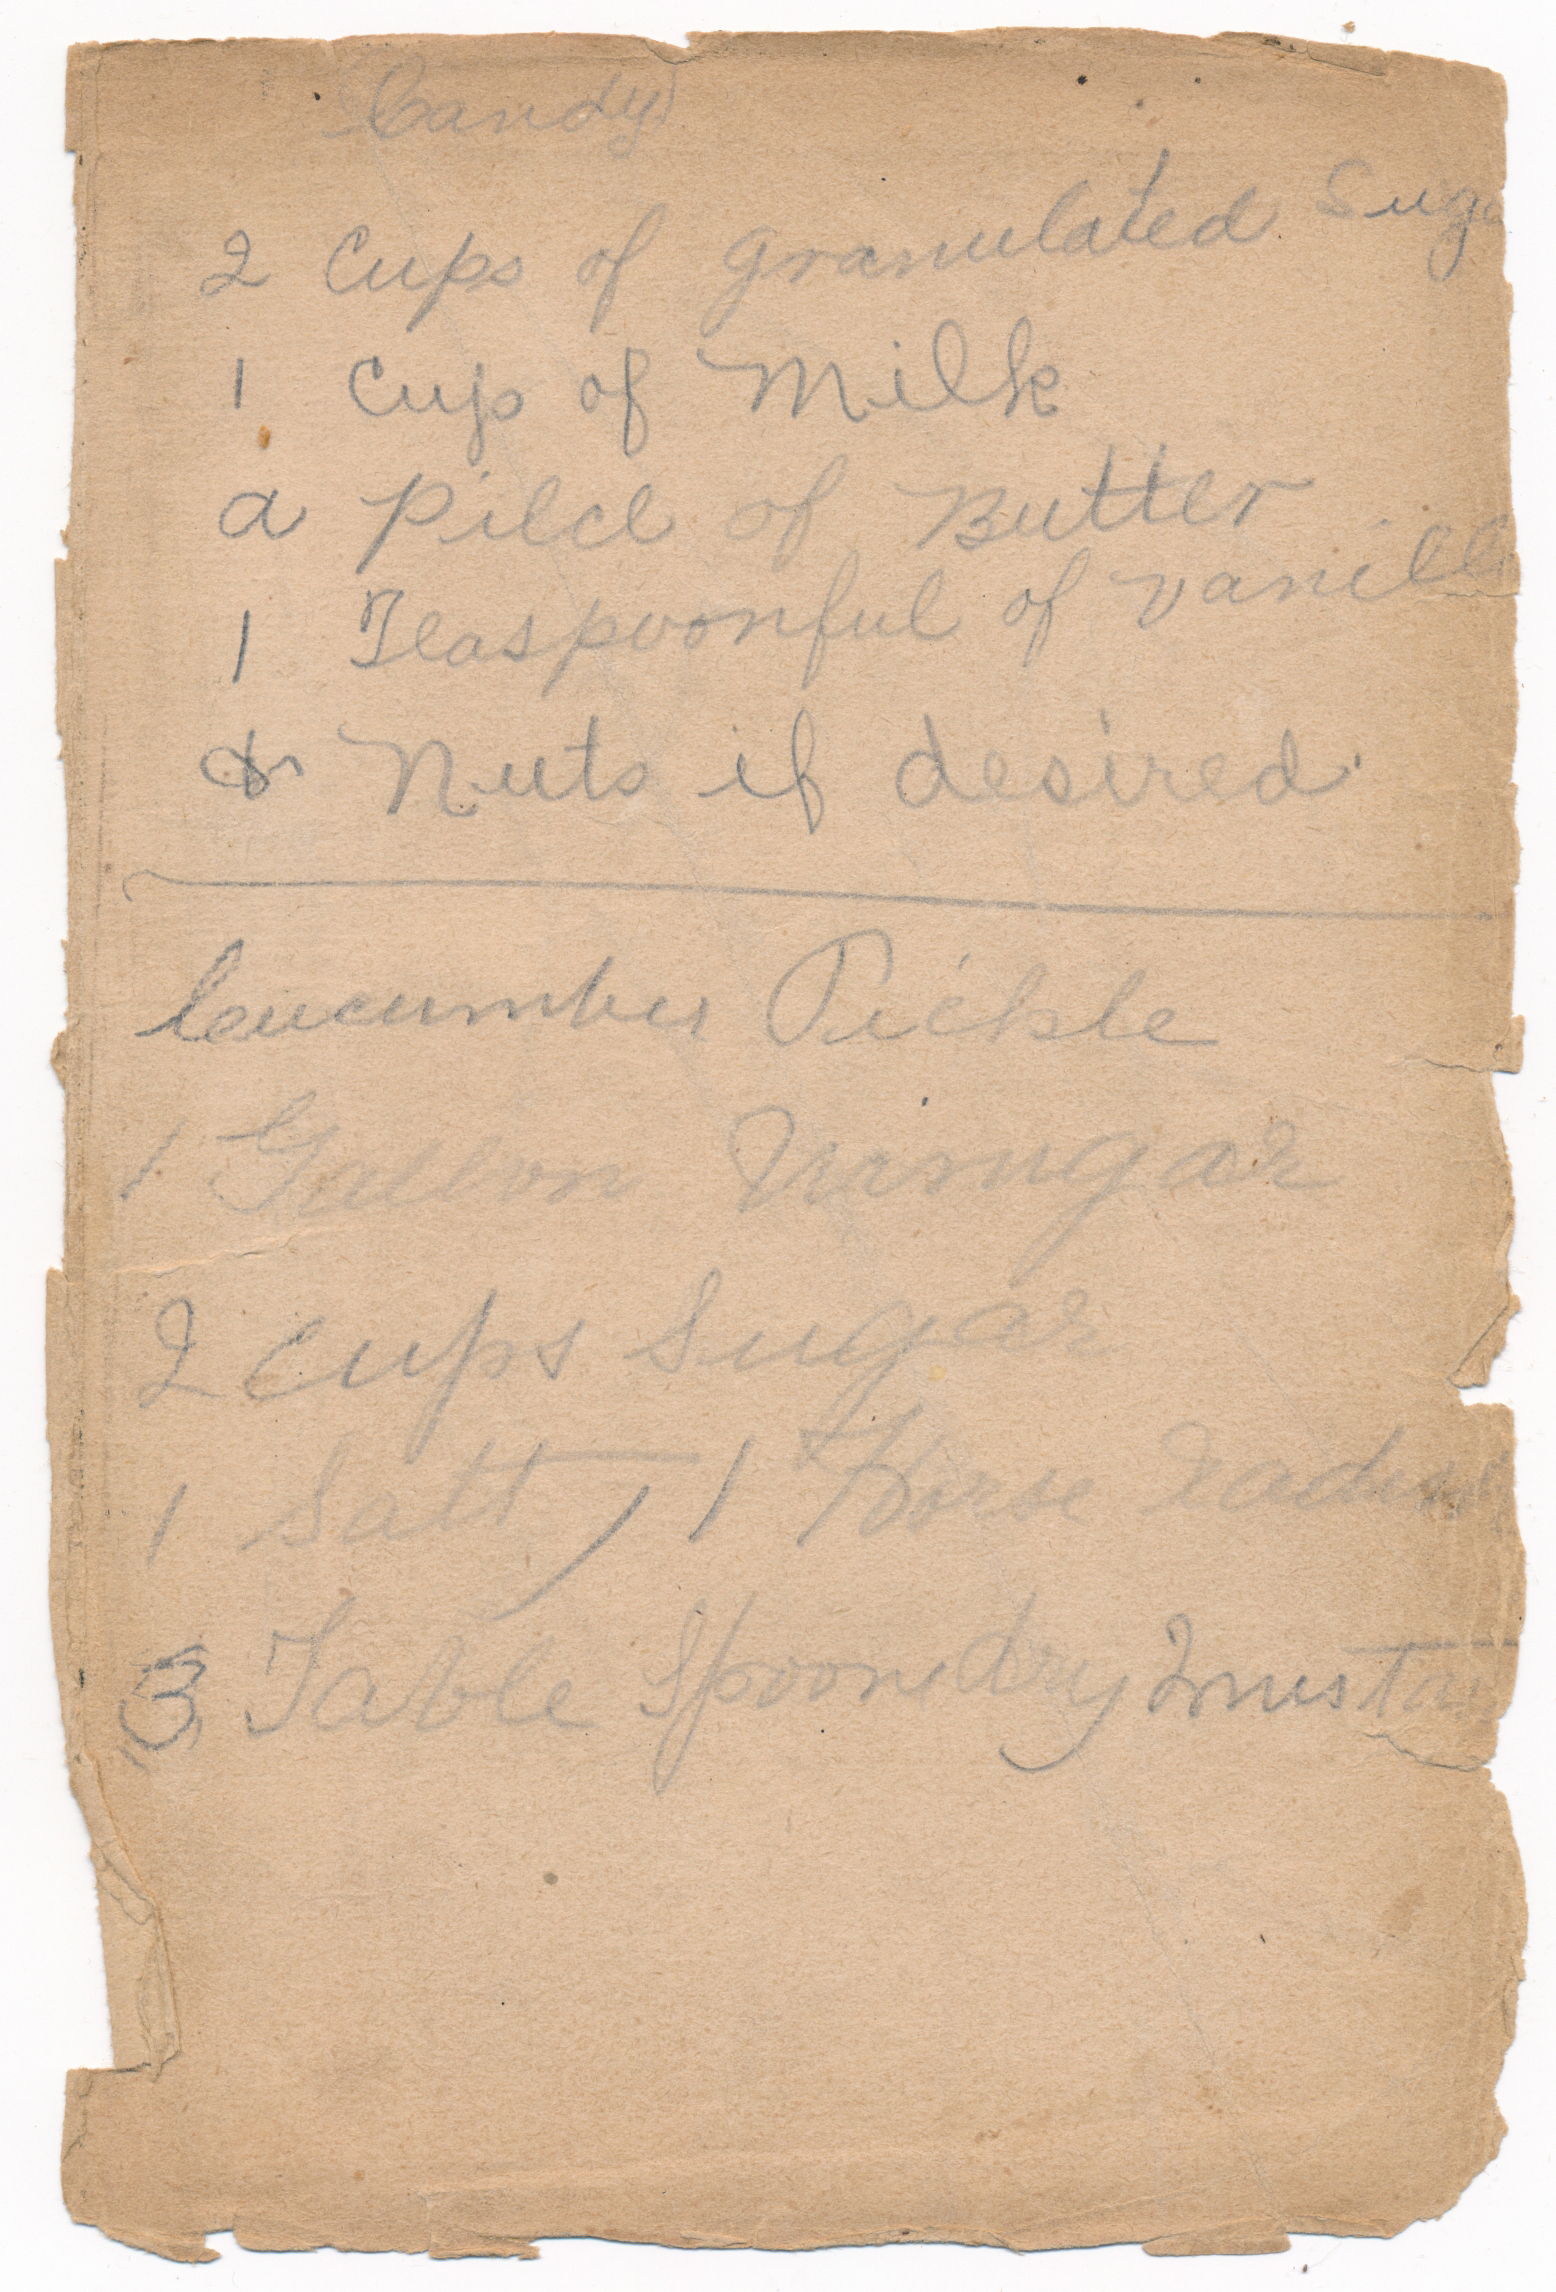 Candy
2 Cups of Granulated Suga
1 Cup of Milk
a Piece of Butter
1 Teaspoonful of Vanill
& Nuts if desired.
Cucumber Pickle
1 Gallon Vinugar
2 Cups Sugar
1 Salt, 1 Horse radish
3 Table Spoons dry mustar